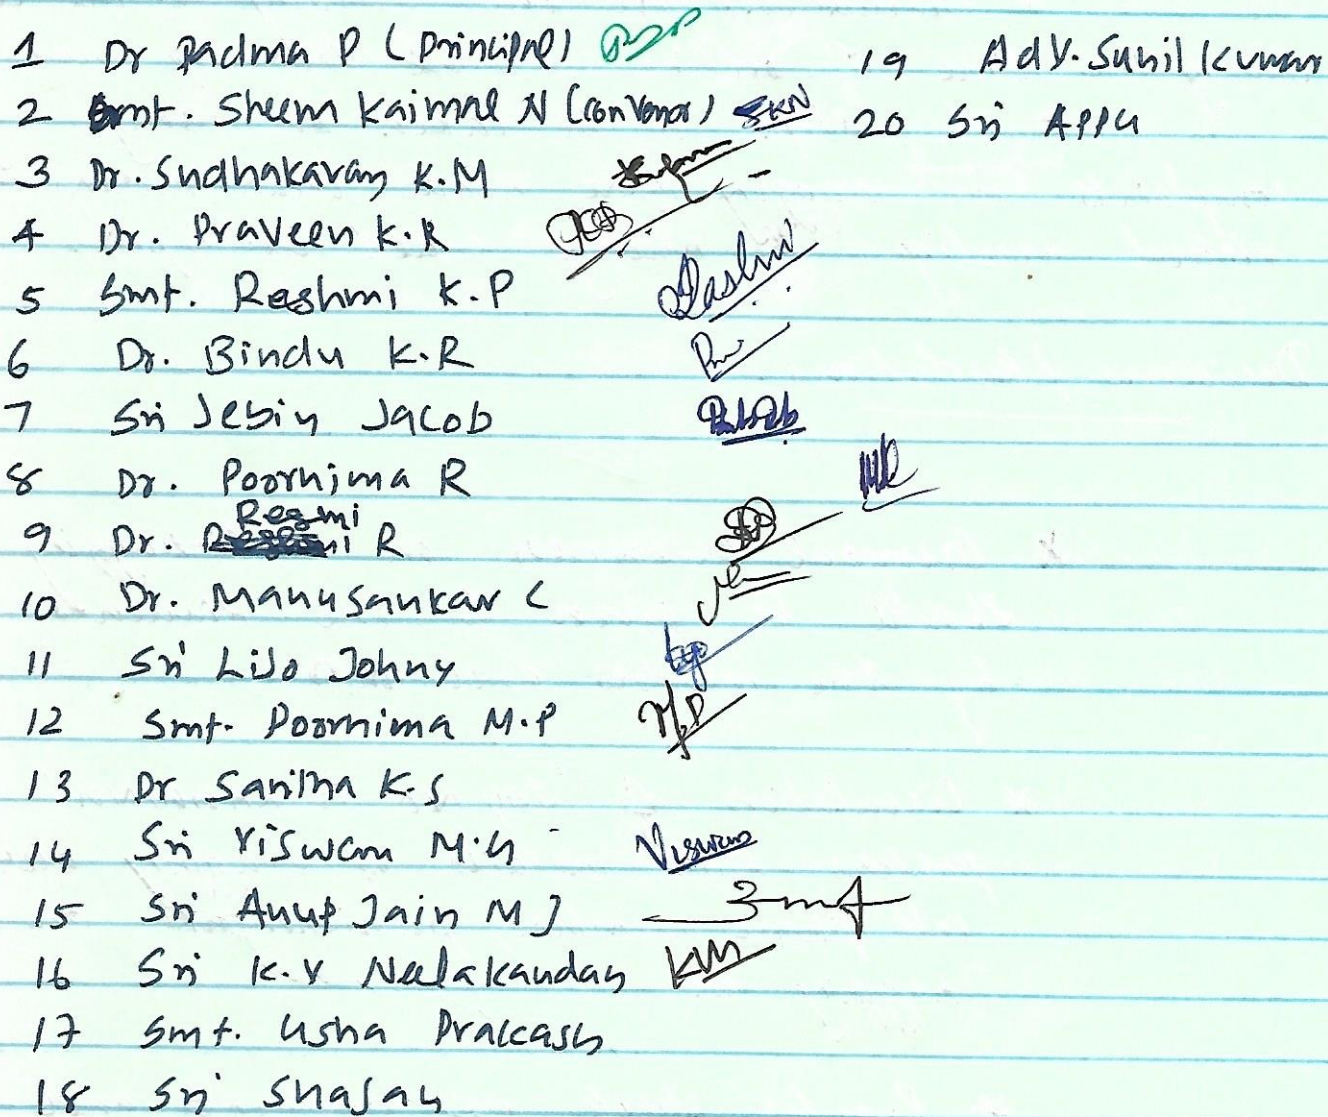 1 Dr Padma P (Principal)
2 Smt. Sheem Kaimal N (Convenor) SKN
3 Dr. Sudhakaran K.M
4 Dr. Praveen K.R
5 Smt. Reshmi K.P
6 Dr. Bindu K.R
7 Sri Jebin Jacob
8 Dr. Poornima R
9 Dr. Resmi R
10 Dr. Manusankar C
11 Sri Lijo Johny
12 Smt. Poornima M.P M.P
13 Dr Saritha K.S
14 Sri Viswam M.G Viswam
15 Sri Anup Jain M J
16 Sri K.V Neelakandan
17 Smt. Usha Prakash
18 Sri Shajan
19 Adv. Sunil Kumar
20 Sri Appu